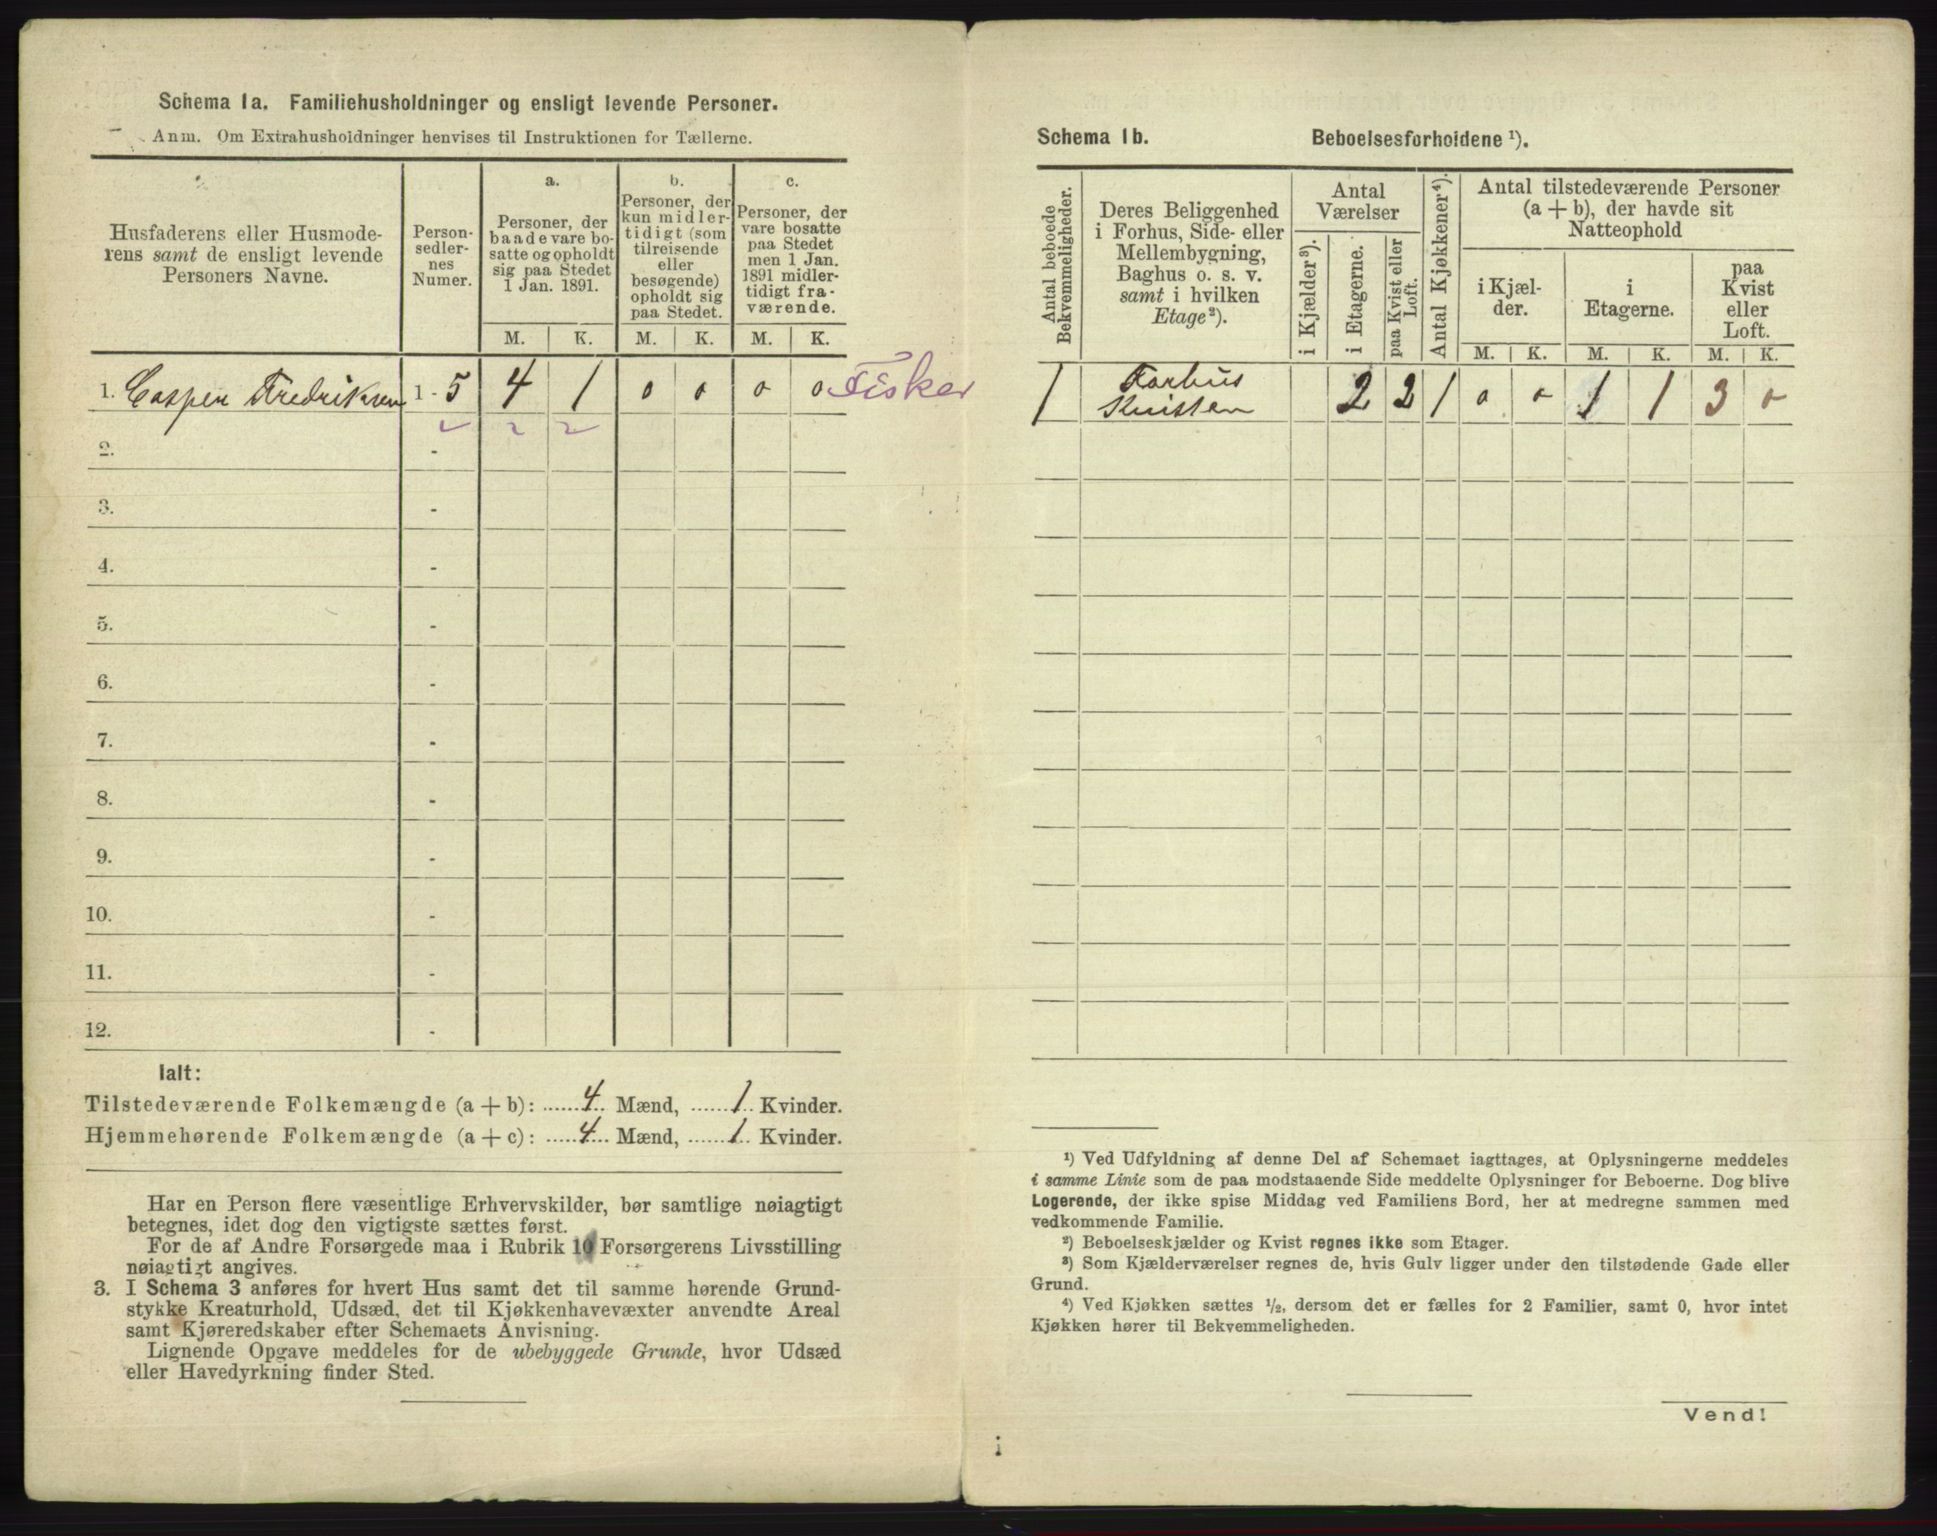 Schema 1a. Familiehusholdninger og ensligt levende Personer.
Anm. Om Extrahusholdninger henvises til Instruktionen for Tællerne.
Husfaderens eller Husmode-
rens samt de ensligt levende
Personers Navne.
Person-
sedler-
nes
Numer.
a.
Personer, der
baade vare bo-
satte og opholdt
sig paa Stedet
1 Jan. 1891.
b.
Personer, der
kun midler-
tidigt (som
tilreisende
eller
besøgende)
opholdt sig
paa Stedet.
c.
Personer, der
vare bosatte
paa Stedet
men 1 Jan.
1891 midler-
tidigt fra-
værende.
M. K. M. K. M. K.
1. Casper Fredriksen 1 - 5 4 1 0 0 0 0 Fisker
2. -
3. -
4. -
5. -
6. -
7. -
8. -
9. -
10. -
11. -
12. -
Ialt:
Tilstedeværende Folkemængde (a + b): 4 Mænd, 1 Kvinder.
Hjemmehørende Folkemængde (a + c): 4 Mænd, 1 Kvinder.
Har en Person flere væsentlige Erhvervskilder, bør samtlige nøiagtigt
betegnes, idet dog den vigtigste sættes først.
For de af Andre Forsørgede maa i Rubrik 10 Forsørgerens Livsstilling
nøiagtigt angives.
3. I Schema 3 anføres for hvert Hus samt det til samme hørende Grund-
stykke Kreaturhold, Udsæd, det til Kjøkkenhavevæxter anvendte Areal
samt Kjøreredskaber efter Schemaets Anvisning.
Lignende Opgave meddeles for de ubebyggede Grunde, hvor Udsæd
eller Havedyrkning finder Sted.
Schema 1b. Beboelsesforholdene ¹).
Antal beboede
Bekvemmeligheder.
Deres Beliggenhed
i Forhus, Side- eller
Mellembygning,
Baghus o. s. v.
samt i hvilken
Etage²).
Antal
Værelser
i Kjælder³).
i Etagerne.
paa Kvist eller
Loft.
Antal Kjøkkener⁴).
Antal tilstedeværende Personer
(a + b), der havde sit
Natteophold
i Kjæl-
der.
i
Etagerne.
paa
Kvist
eller
Loft.
M. K. M. K. M. K.
1 Forhus 2 2 1 0 0 1 1 3 0
Kvisten
¹) Ved Udfyldning af denne Del af Schemaet iagttages, at Oplysningerne meddeles
i samme Linie som de paa modstaaende Side meddelte Oplysninger for Beboerne. Dog blive
Logerende, der ikke spise Middag ved Familiens Bord, her at medregne sammen med
vedkommende Familie.
²) Beboelseskjælder og Kvist regnes ikke som Etager.
³) Som Kjælderværelser regnes de, hvis Gulv ligger under den tilstødende Gade eller
Grund.
⁴) Ved Kjøkken sættes ½, dersom det er fælles for 2 Familier, samt 0, hvor intet
Kjøkken hører til Bekvemmeligheden.
Vend!